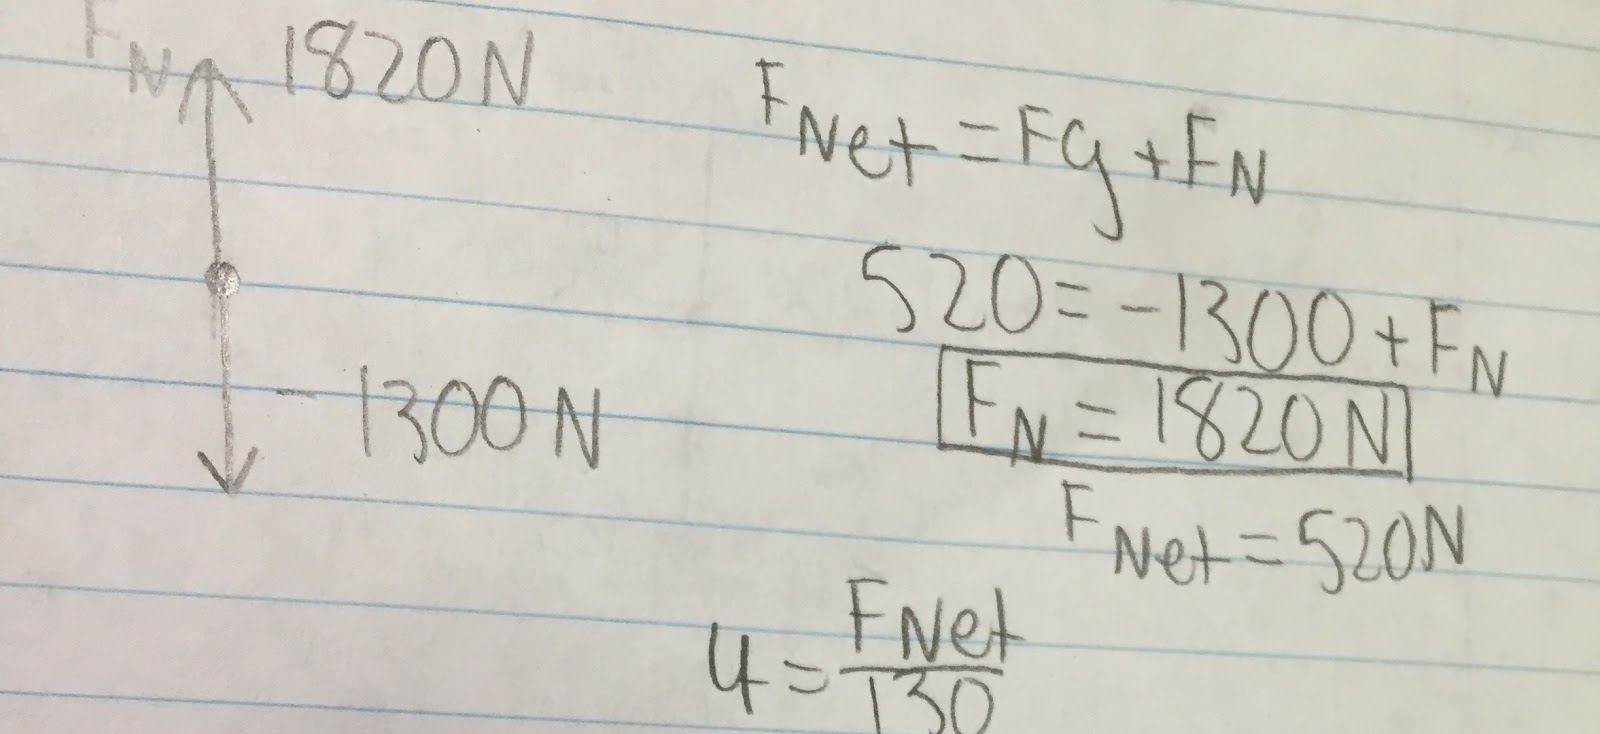 F_N 1820N
-1300N
F_Net = Fg + F_N
520 = -1300 + F_N
F_N = 1820N
F_Net = 520N
4 = F_Net / 130